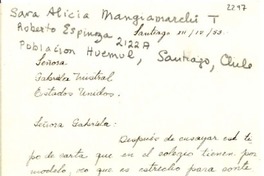 2297
Sara Alicia Mangiamarchi T
Roberto Espinoza 2122A
Santiago III/IV/53.
Poblacion Huemul, Santiago, Chile
Señora
Gabriela Mistral
Estados Unidos.
Señora Gabriela:
Después de ensayar est ti
po de carta que en el colegio tienen por
modelo, lo que es estrecho para conte